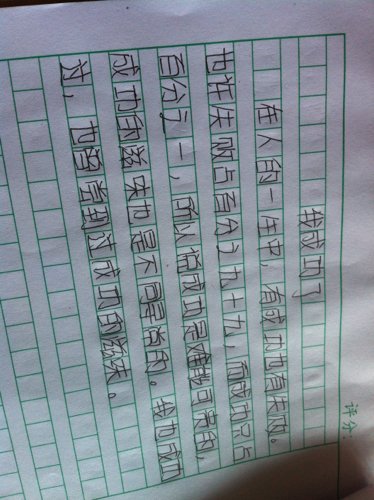 评分:
我成功了
在人的一生中，有成功也有失败。
也许失败占百分之九十九，而成功只占
百分之一，所以说成功是难能可贵的，
成功的滋味也是不同寻常的。我也成功
过，也曾尝到过成功的滋味。